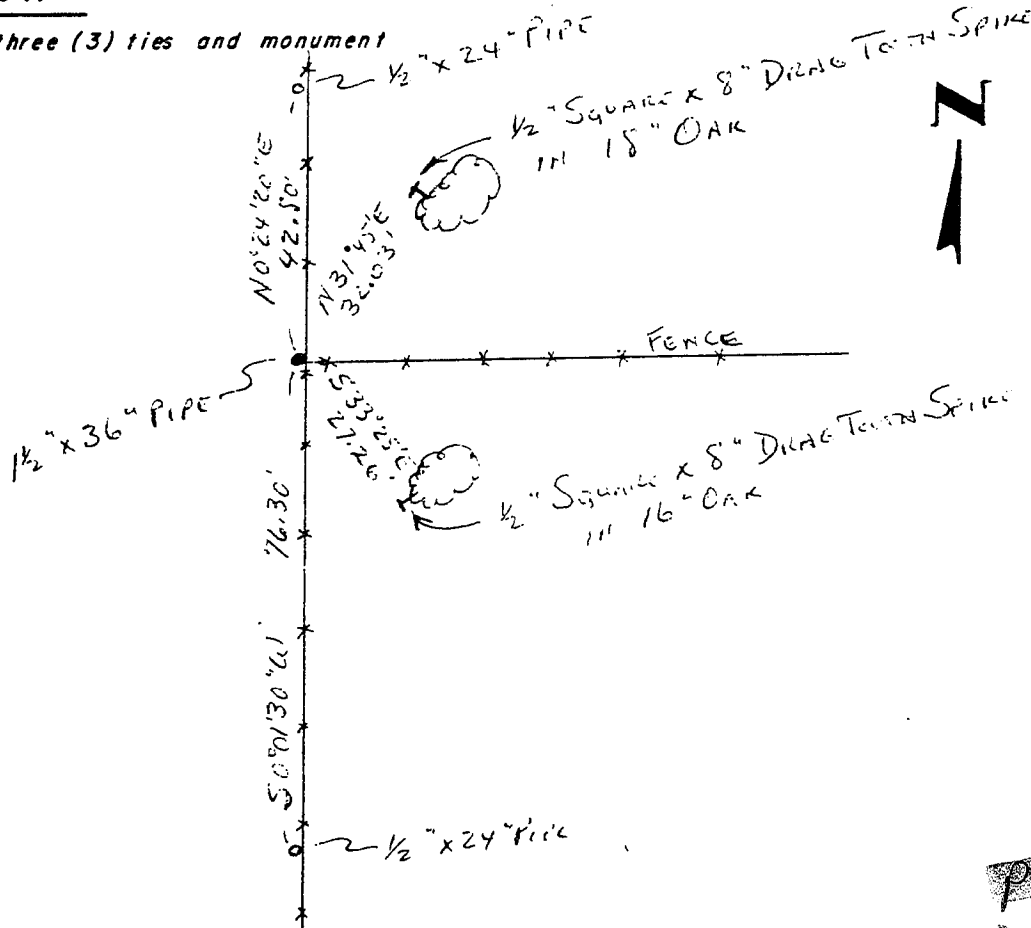 three (3) ties and monument
½" x 24" PIPE
½" SQUARE x 8" DRAG TOOTH SPIKE
IN 18" OAK
N
N0°24'20"E
42.50'
N31°45'E
32.03'
FENCE
1½" x 36" PIPE
S33°25'E
27.26'
½" SQUARE x 8" DRAG TOOTH SPIKE
IN 16" OAK
76.30'
S0°01'30"W
½" x 24" PIPE